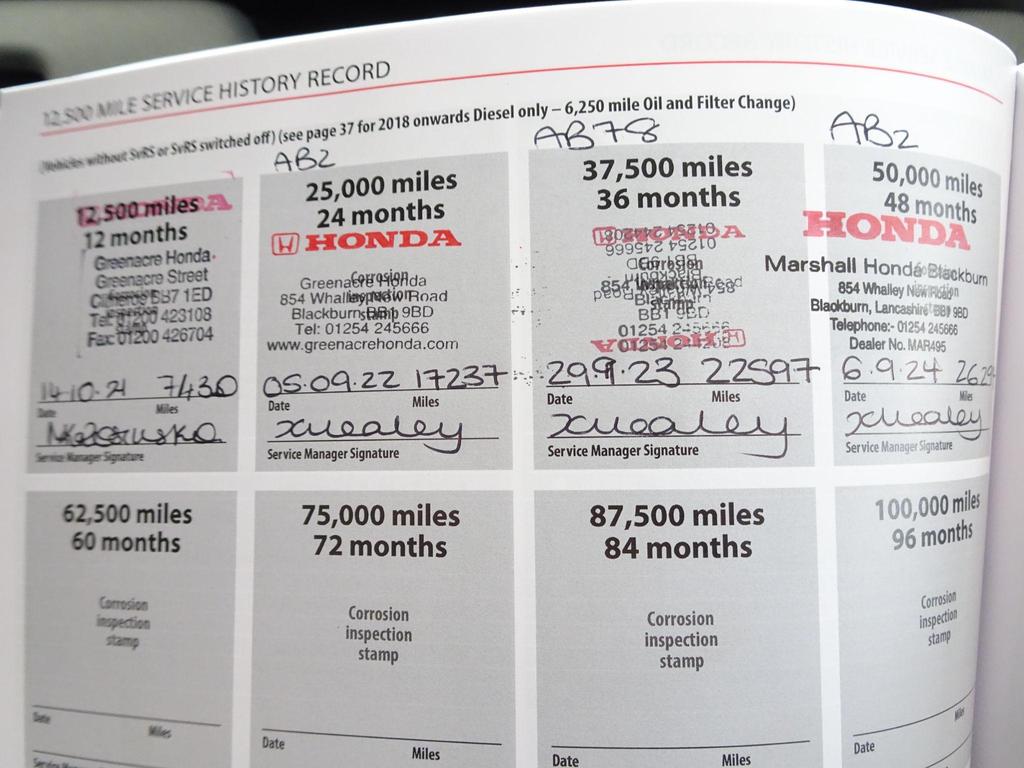 12,500 MILE SERVICE HISTORY RECORD
(Vehicles without SvRS or SvRS switched off) (see page 37 for 2018 onwards Diesel only – 6,250 mile Oil and Filter Change)
12,500 miles
12 months
Greenacre Honda
Greenacre Street
BB7 1ED
Tel: 01200 423108
Fax: 01200 426704
14-10-21 7430
Date Miles
Service Manager Signature
AB2
25,000 miles
24 months
HONDA
Corrosion
inspection
stamp
Greenacre Honda
854 Whalley New Road
Blackburn BB1 9BD
Tel: 01254 245666
www.greenacrehonda.com
05.09.22 17237
Date Miles
Service Manager Signature
AB78
37,500 miles
36 months
HONDA
Corrosion
stamp
BB1 9BD
HONDA
29.9.23 22597
Date Miles
Service Manager Signature
AB2
50,000 miles
48 months
HONDA
Marshall Honda Blackburn
854 Whalley New Road
Blackburn, Lancashire BB1 9BD
Telephone:- 01254 245666
Dealer No. MAR495
6.9.24
Date Miles
Service Manager Signature
62,500 miles
60 months
Corrosion
inspection
stamp
Date Miles
75,000 miles
72 months
Corrosion
inspection
stamp
Date Miles
87,500 miles
84 months
Corrosion
inspection
stamp
Date Miles
100,000 miles
96 months
Corrosion
inspection
stamp
Date Miles